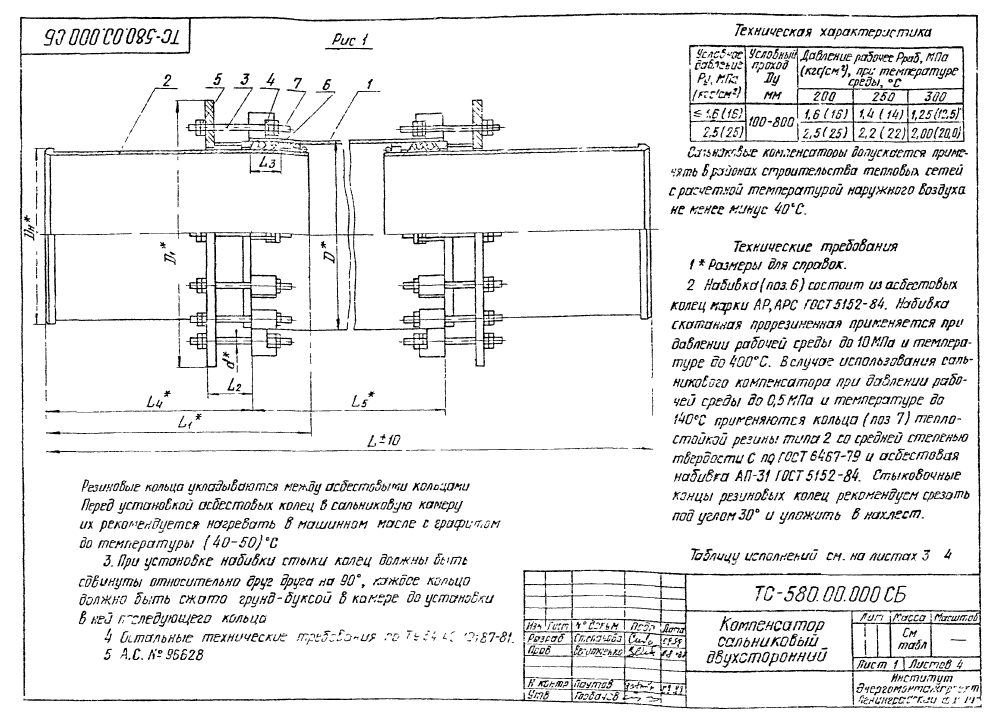 ТС-580.00.000 СБ
Рис 1
5 3 4 7 6 1
2
L3
Dн*
D1*
D*
d*
L2
L4*
L5*
L1*
L±10
Техническая характеристика
Условное давление Ру, МПа (кгс/см²)
Условный проход Ду мм
Давление рабочее Рраб, МПа (кгс/см²), при температуре среды, °С
200 250 300
≤1,6(16) 100-800 1,6(16) 1,4(14) 1,25(12,5)
2,5(25) 2,5(25) 2,2(22) 2,00(20,0)
Сальниковые компенсаторы допускается приме-
нять в районах строительства тепловых сетей
с расчетной температурой наружного воздуха
не менее минус 40°С.
Технические требования
1 * Размеры для справок.
2 Набивка (поз. 6) состоит из асбестовых
колец марки АР, АРС ГОСТ 5152-84. Набивка
скатанная прорезиненная применяется при
давлении рабочей среды до 10 МПа и темпера-
туре до 400°С. В случае использования саль-
никового компенсатора при давлении рабо-
чей среды до 0,5 МПа и температуре до
140°С применяются кольца (поз 7) тепло-
стойкой резины типа 2 со средней степенью
твердости С по ГОСТ 6467-79 и асбестовая
набивка АП-31 ГОСТ 5152-84. Стыковочные
концы резиновых колец рекомендуем срезать
под углом 30° и уложить в нахлест.
Таблицу исполнений см. на листах 3 4
Резиновые кольца укладываются между асбестовыми кольцами
Перед установкой асбестовых колец в сальниковую камеру
их рекомендуется нагревать в машинном масле с графитом
до температуры (40-50)°С
3. При установке набивки стыки колец должны быть
сдвинуты относительно друг друга на 90°, каждое кольцо
должно быть сжато грунд-буксой в камере до установки
в ней последующего кольца
4 Остальные технические требования по ТУ
5 А.С. № 96628
ТС-580.00.000 СБ
Изм Лист № Докум Подп Дата
Разраб
Пров
Н контр Паутов
Утв Горбачев
Компенсатор
сальниковый
двухсторонний
Лит Масса Масштаб
См табл —
Лист 1 Листов 4
Институт